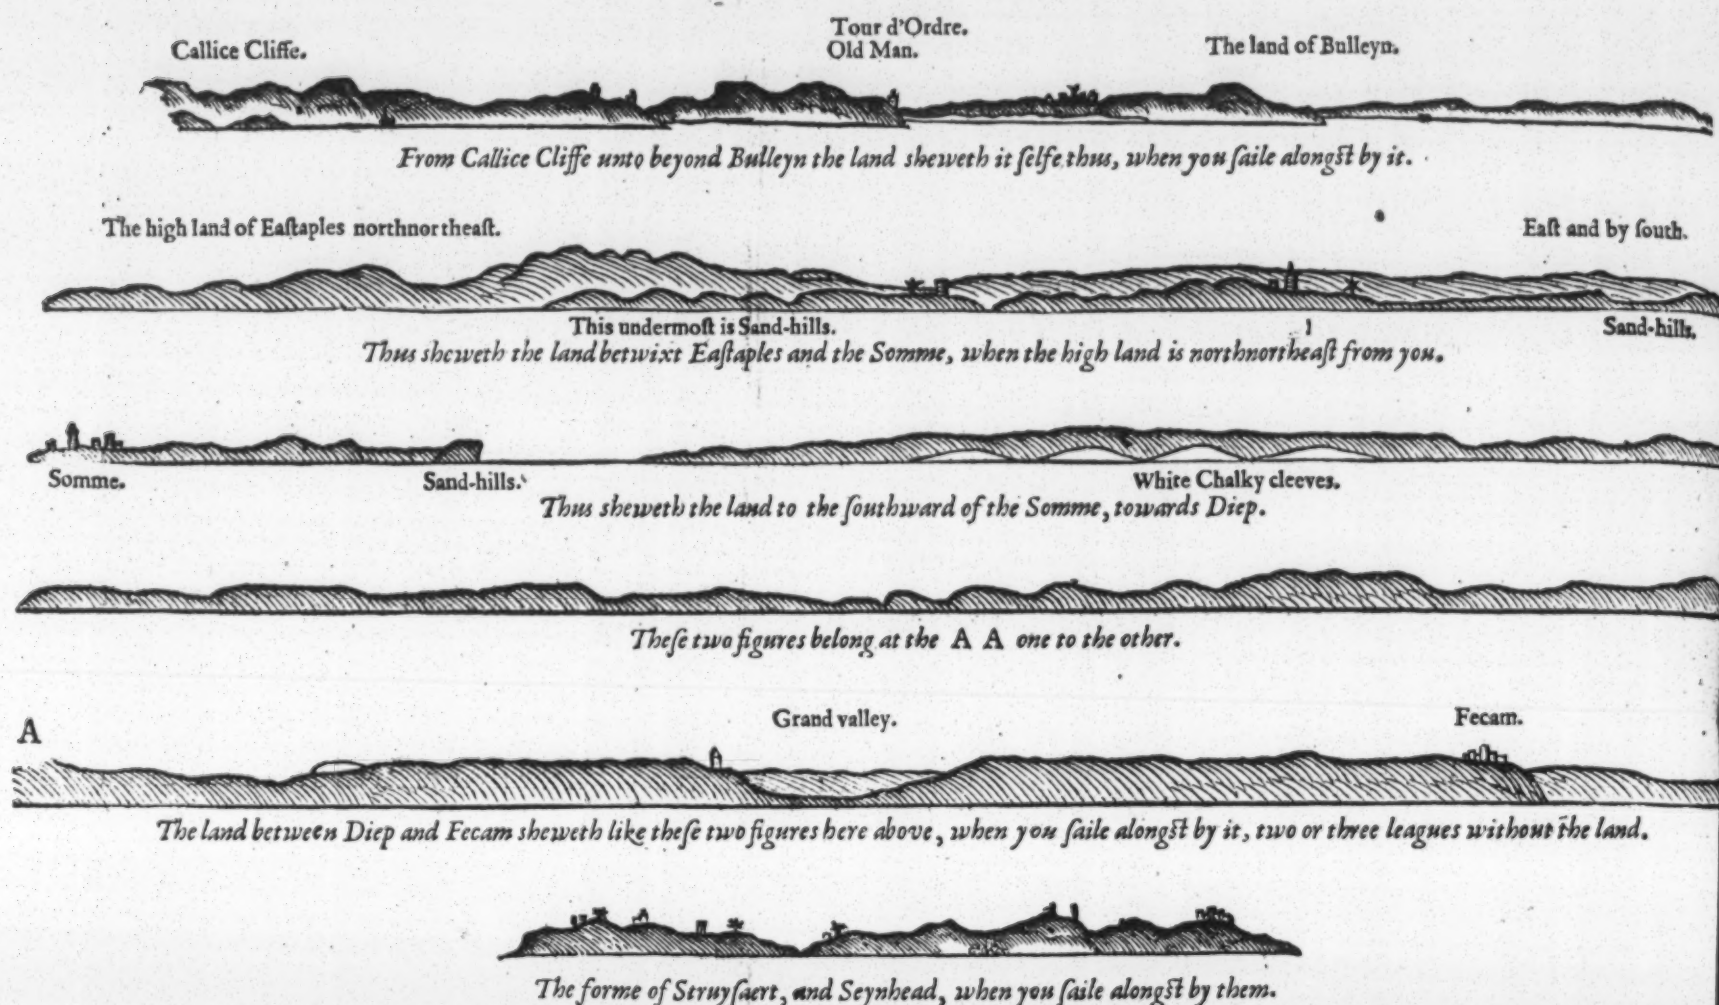 Tour d'Ordre.
Callice Cliffe. Old Man. The land of Bulleyn.
From Callice Cliffe unto beyond Bulleyn the land sheweth it ſelfe thus, when you ſaile alongſt by it.
The high land of Eaſtaples northnortheaſt. Eaſt and by ſouth.
This undermoſt is Sand-hills. Sand-hills.
Thus sheweth the land betwixt Eaſtaples and the Somme, when the high land is northnortheaſt from you.
Somme. Sand-hills. White Chalky cleeves.
Thus sheweth the land to the ſouthward of the Somme, towards Diep.
Theſe two figures belong at the A A one to the other.
A Grand valley. Fecam.
The land between Diep and Fecam sheweth like theſe two figures here above, when you ſaile alongſt by it, two or three leagues without the land.
The forme of Struyſaert, and Seynhead, when you ſaile alongſt by them.